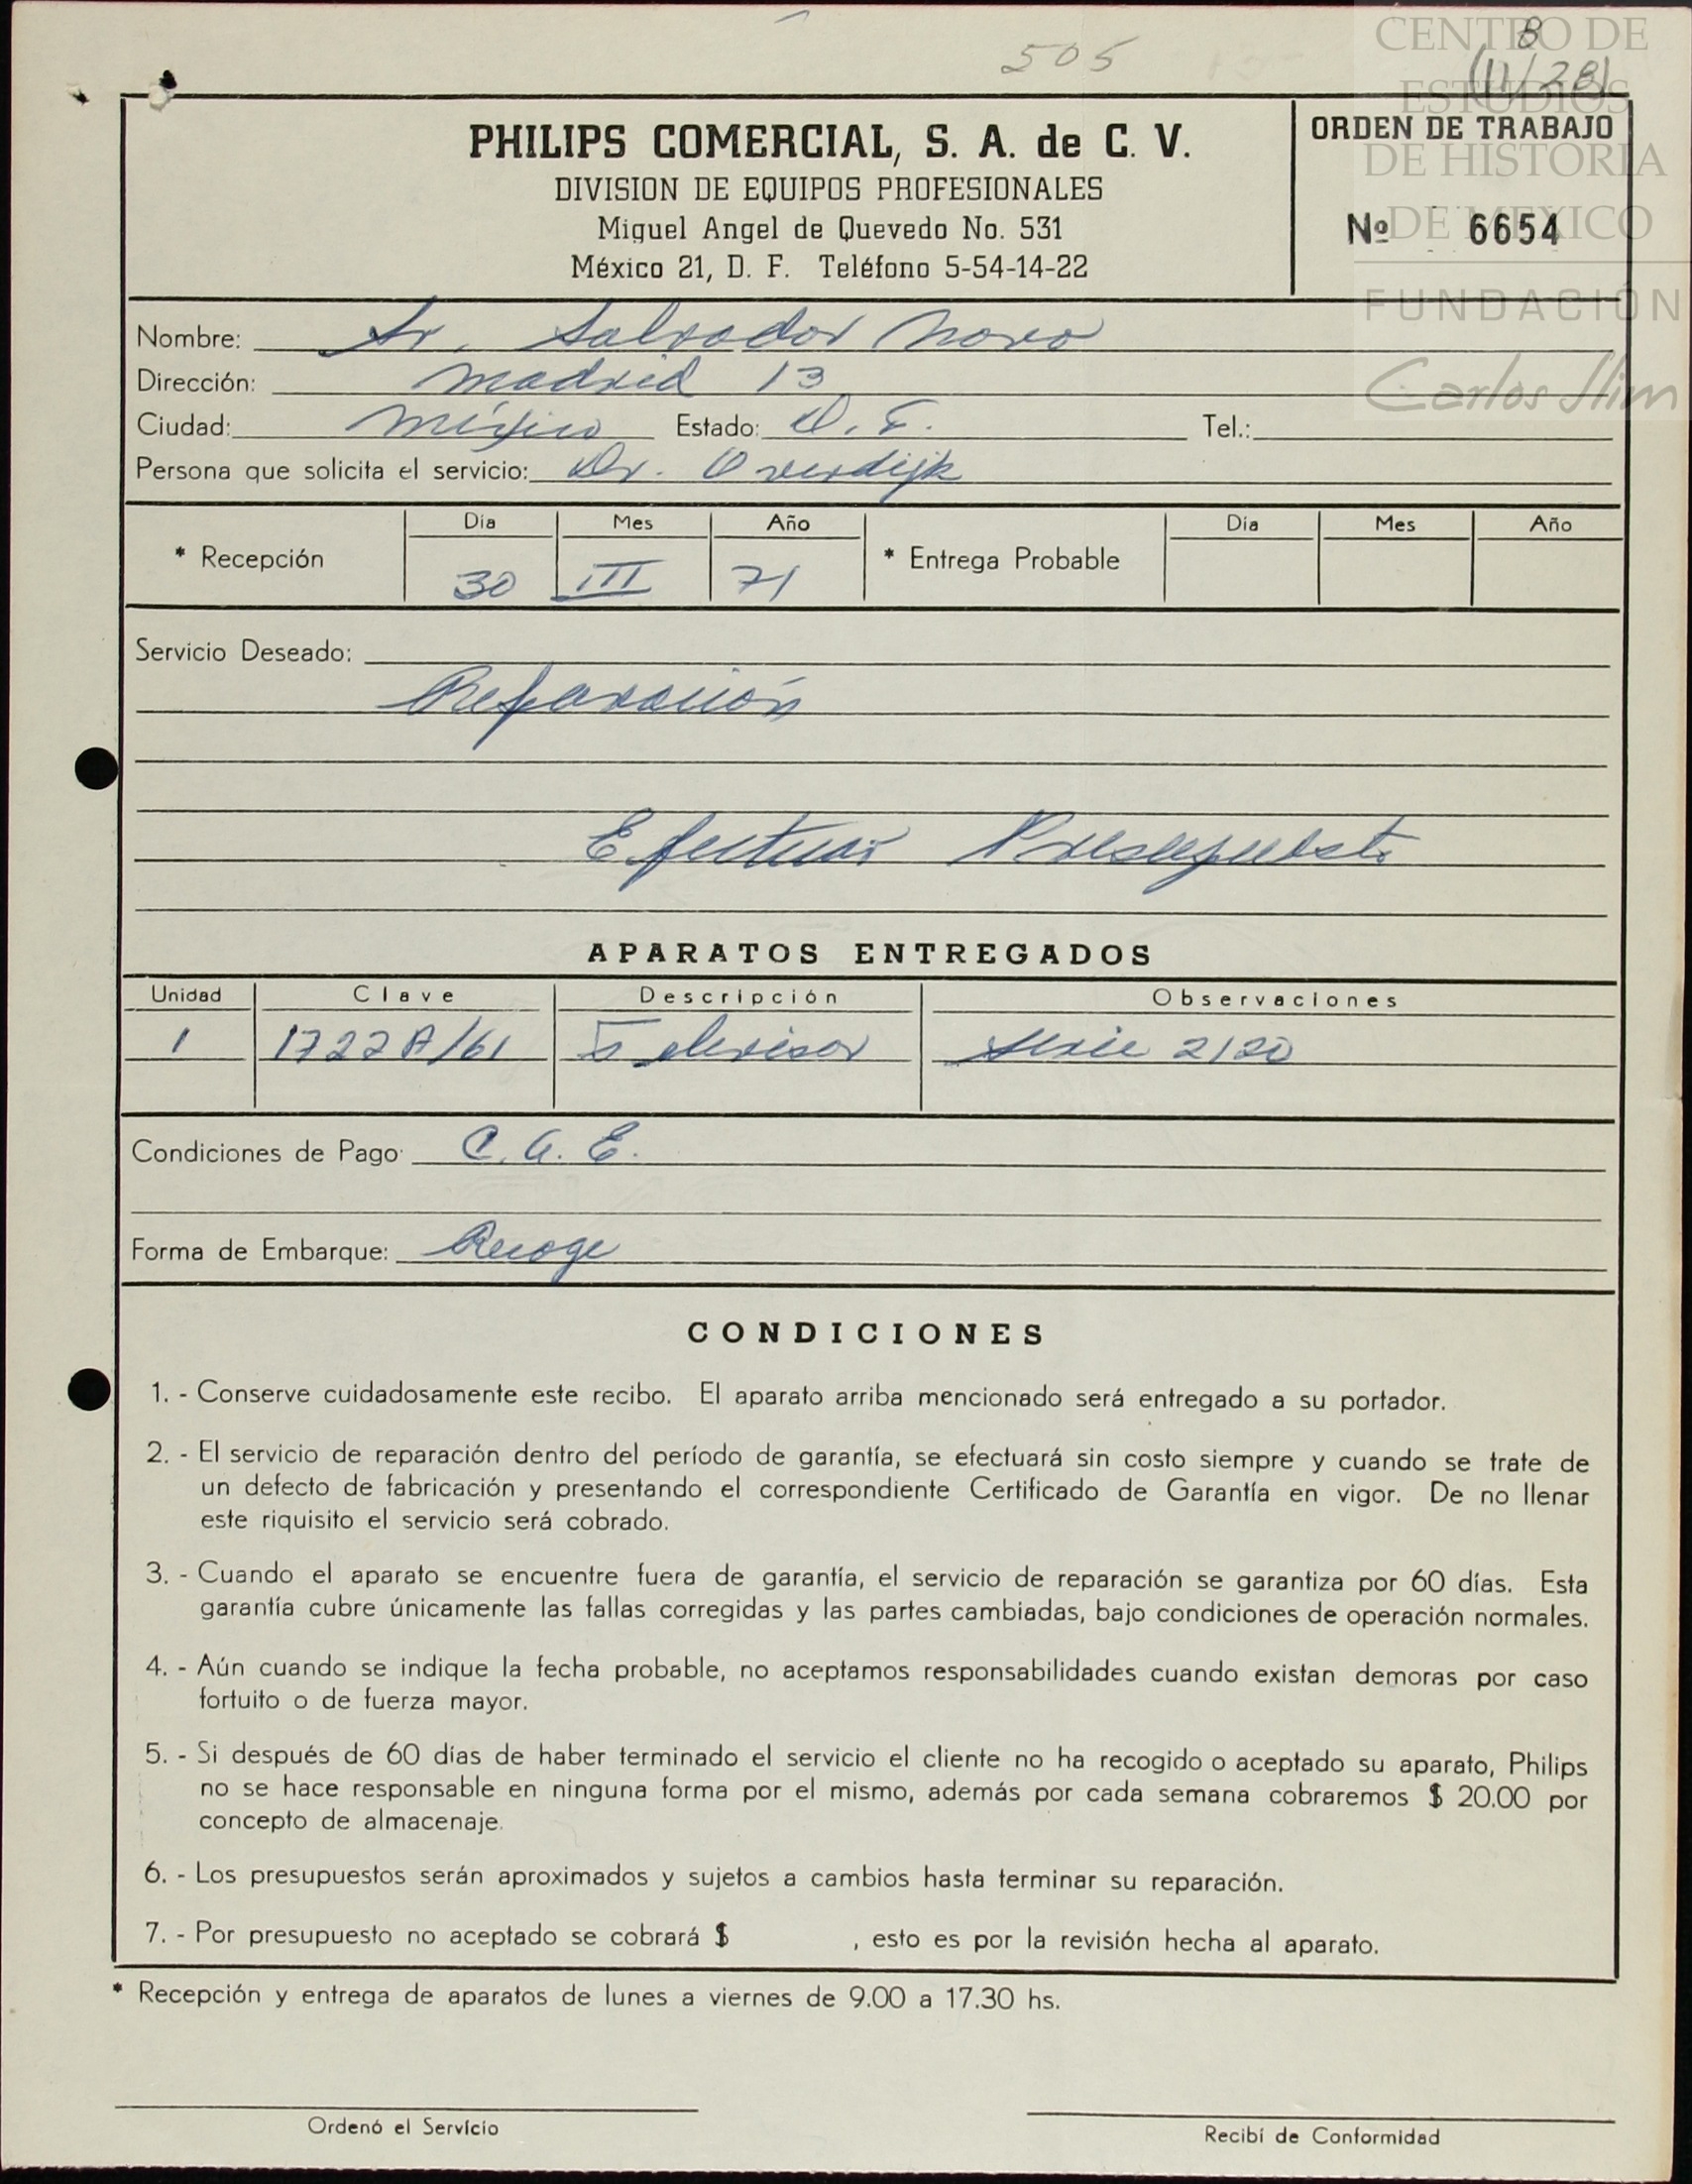 505
8
(11/28)
CENTRO DE
ESTUDIOS
DE HISTORIA
DE MEXICO
FUNDACIÓN
Carlos Slim
PHILIPS COMERCIAL, S. A. de C. V.
DIVISION DE EQUIPOS PROFESIONALES
Miguel Angel de Quevedo No. 531
México 21, D. F. Teléfono 5-54-14-22
ORDEN DE TRABAJO
Nº 6654
Nombre: Sr. Salvador Novo
Dirección: Madrid 13
Ciudad: México Estado: D. F. Tel.:
Persona que solicita el servicio: Dr. Overdijk
* Recepción Día Mes Año * Entrega Probable Día Mes Año
30 III 71
Servicio Deseado:
Reparación
Efectuar Presupuesto
APARATOS ENTREGADOS
Unidad Clave Descripción Observaciones
1 1722A/61 Televisor Serie 2120
Condiciones de Pago C. A. E.
Forma de Embarque: Recoge
CONDICIONES
1. - Conserve cuidadosamente este recibo. El aparato arriba mencionado será entregado a su portador.
2. - El servicio de reparación dentro del período de garantía, se efectuará sin costo siempre y cuando se trate de
un defecto de fabricación y presentando el correspondiente Certificado de Garantía en vigor. De no llenar
este riquisito el servicio será cobrado.
3. - Cuando el aparato se encuentre fuera de garantía, el servicio de reparación se garantiza por 60 días. Esta
garantía cubre únicamente las fallas corregidas y las partes cambiadas, bajo condiciones de operación normales.
4. - Aún cuando se indique la fecha probable, no aceptamos responsabilidades cuando existan demoras por caso
fortuito o de fuerza mayor.
5. - Si después de 60 días de haber terminado el servicio el cliente no ha recogido o aceptado su aparato, Philips
no se hace responsable en ninguna forma por el mismo, además por cada semana cobraremos $ 20.00 por
concepto de almacenaje.
6. - Los presupuestos serán aproximados y sujetos a cambios hasta terminar su reparación.
7. - Por presupuesto no aceptado se cobrará $ , esto es por la revisión hecha al aparato.
* Recepción y entrega de aparatos de lunes a viernes de 9.00 a 17.30 hs.
Ordenó el Servicio
Recibí de Conformidad